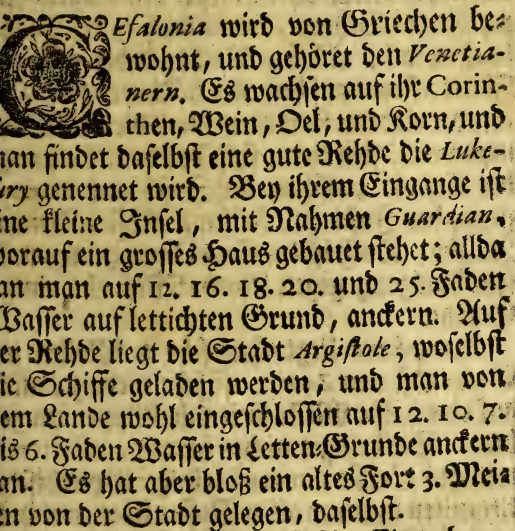 CEfalonia wird von Griechen be-
wohnt, und gehöret den Venetia-
nern. Es wachsen auf ihr Corin-
then, Wein, Oel, und Korn, und
man findet daselbst eine gute Rehde die Luke-
ury genennet wird. Bey ihrem Eingange ist
ine kleine Insel, mit Nahmen Guardian,
worauf ein grosses Haus gebauet stehet; allda
an man auf 12. 16. 18. 20. und 25. Faden
Wasser auf lettichten Grund, anckern. Auf
er Rehde liegt die Stadt Argistole, woselbst
ie Schiffe geladen werden, und man von
em Lande wohl eingeschlossen auf 12. 10. 7.
is 6. Faden Wasser in Letten-Grunde anckern
an. Es hat aber bloß ein altes Fort 3. Mei-
en von der Stadt gelegen, daselbst.